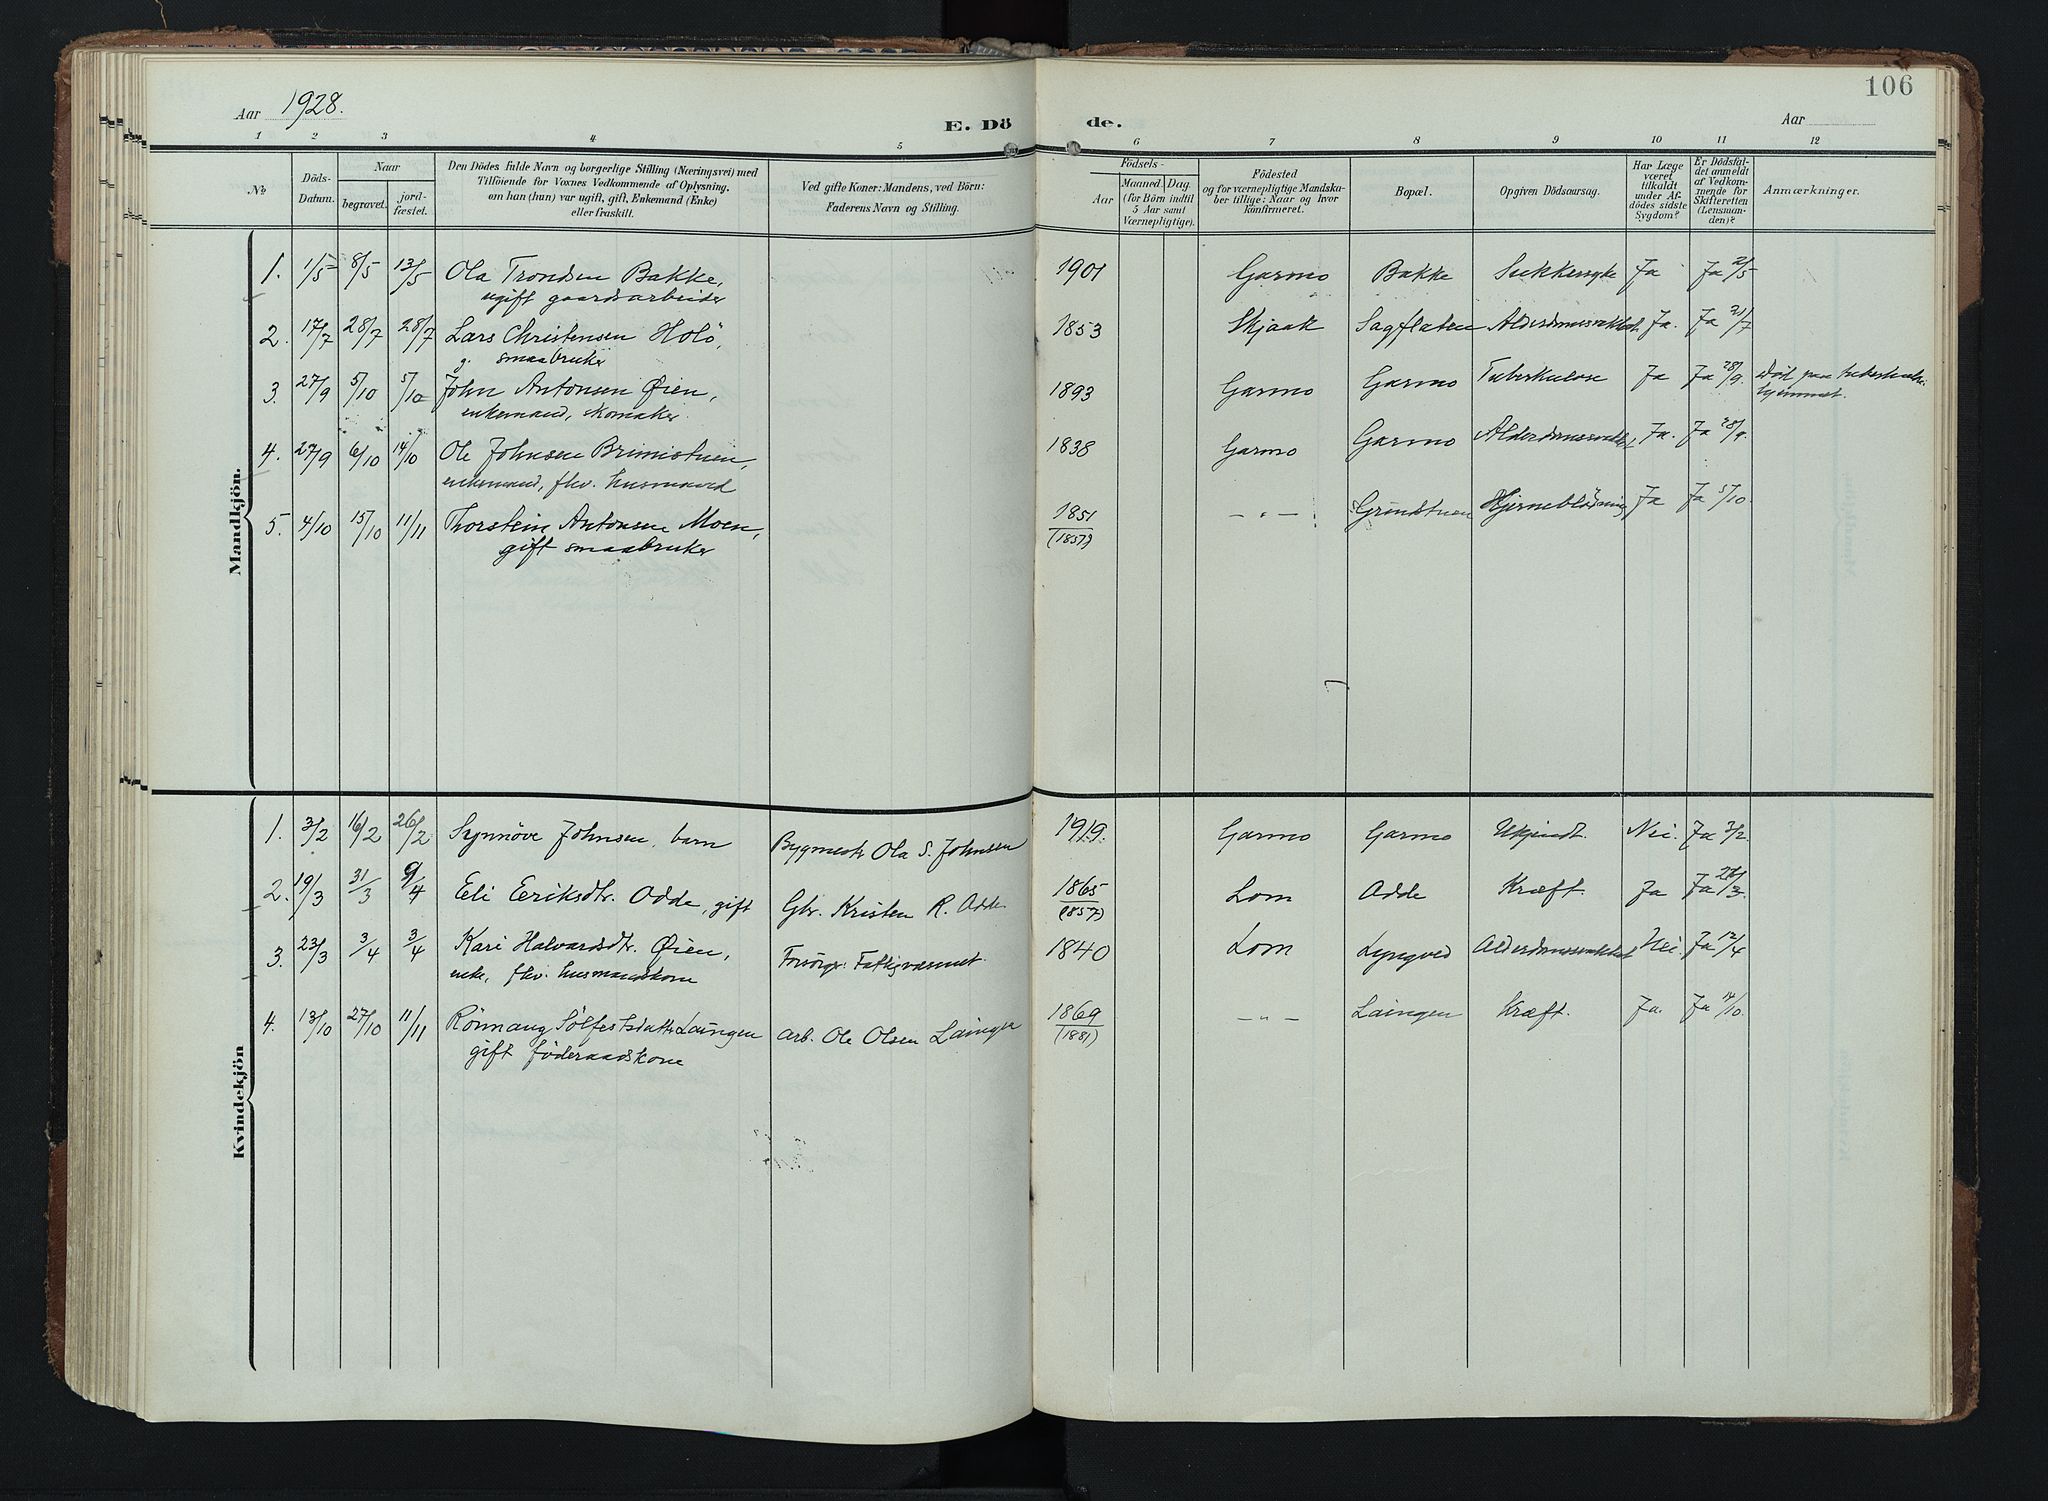 106
Aar 1928.
E. Döde.
Aar
1 2 3 4 5 6 7 8 9 10 11 12
No
Döds-Datum.
Naar
begravet.
jord-fæstet.
Den Dödes fulde Navn og borgerlige Stilling (Næringsvei) med
Tilföiende for Voxnes Vedkommende af Oplysning,
om han (hun) var ugift, gift, Enkemand (Enke)
eller fraskilt.
Ved gifte Koner: Mandens, ved Börn:
Faderens Navn og Stilling.
Födsels-
Aar
Maaned. Dag.
(for Börn indtil
5 Aar samt
Værnepligtige).
Födested
og for værnepligtige Mandska-
ber tillige: Naar og hvor
konfirmeret.
Bopæl.
Opgiven Dödsaarsag.
Har Læge
været
tilkaldt
under Af-
dödes sidste
Sygdom?
Er Dödsfal-
det anmeldt
af Vedkom-
mende for
Skifteretten
(Lensman-
den)?
Anmærkninger.
Mandkjön.
1. 1/5 8/5 13/5 Ola Trondsen Bakke, 1901 Garmo Bakke Sukkersyke Ja Ja 2/5
ugift gaardsarbeider
2. 17/7 28/7 28/7 Lars Christensen Holö, 1853 Skjaak Sagflaten Ja. Ja 21/7
g. smaabruker
3. 27/9 5/10 5/10 John Antonsen Øien, 1893 Garmo Garmo Tuberkulose Ja Ja 28/9. Död paa tuberkulose-
enkemand, skomaker. hjemmet.
4. 27/9 6/10 14/10 Ole Johnsen Brimistuen, 1838 Garmo Garmo Ja. Ja 28/9.
enkemand, fhv. husmand
5. 4/10 15/10 11/11 Thorstein Antonsen Moen, 1851 — " — Grindstuen Hjerneblödning Ja Ja 5/10.
gift smaabruker (1857)
Kvindekjön
1. 3/2 16/2 26/2 Synnöve Johnsen, barn Bygmestr Ola S. Johnsen 1919. Garmo Garmo Ukjendt. Nei. Ja 3/2.
2. 19/3 31/3 9/4 Eli Eriksdtr. Odde, gift Gbr. Kristen R. Odde 1865 Lom Odde Kræft. Ja Ja 26/3.
(1857)
3. 23/3 3/4 3/4 Kari Halvardsdtr. Øien, Forsörger: Fattigvæsenet. 1840 Lom Lyngved Nei. Ja 12/4
enke, fhv. husmandskone
4. 13/10 27/10 11/11 Rönnaug Sölfestsdatter Laingen arb. Ole Olsen Laingen 1869 — " — Laingen Kræft. Ja. Ja 14/10.
gift föderaadskone (1881)